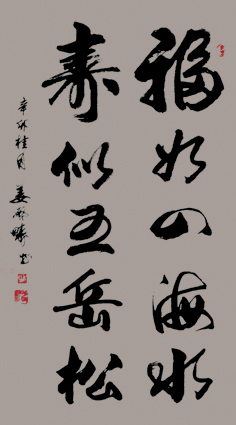 福如四海水
寿似五岳松
辛卯桂月
姜
书